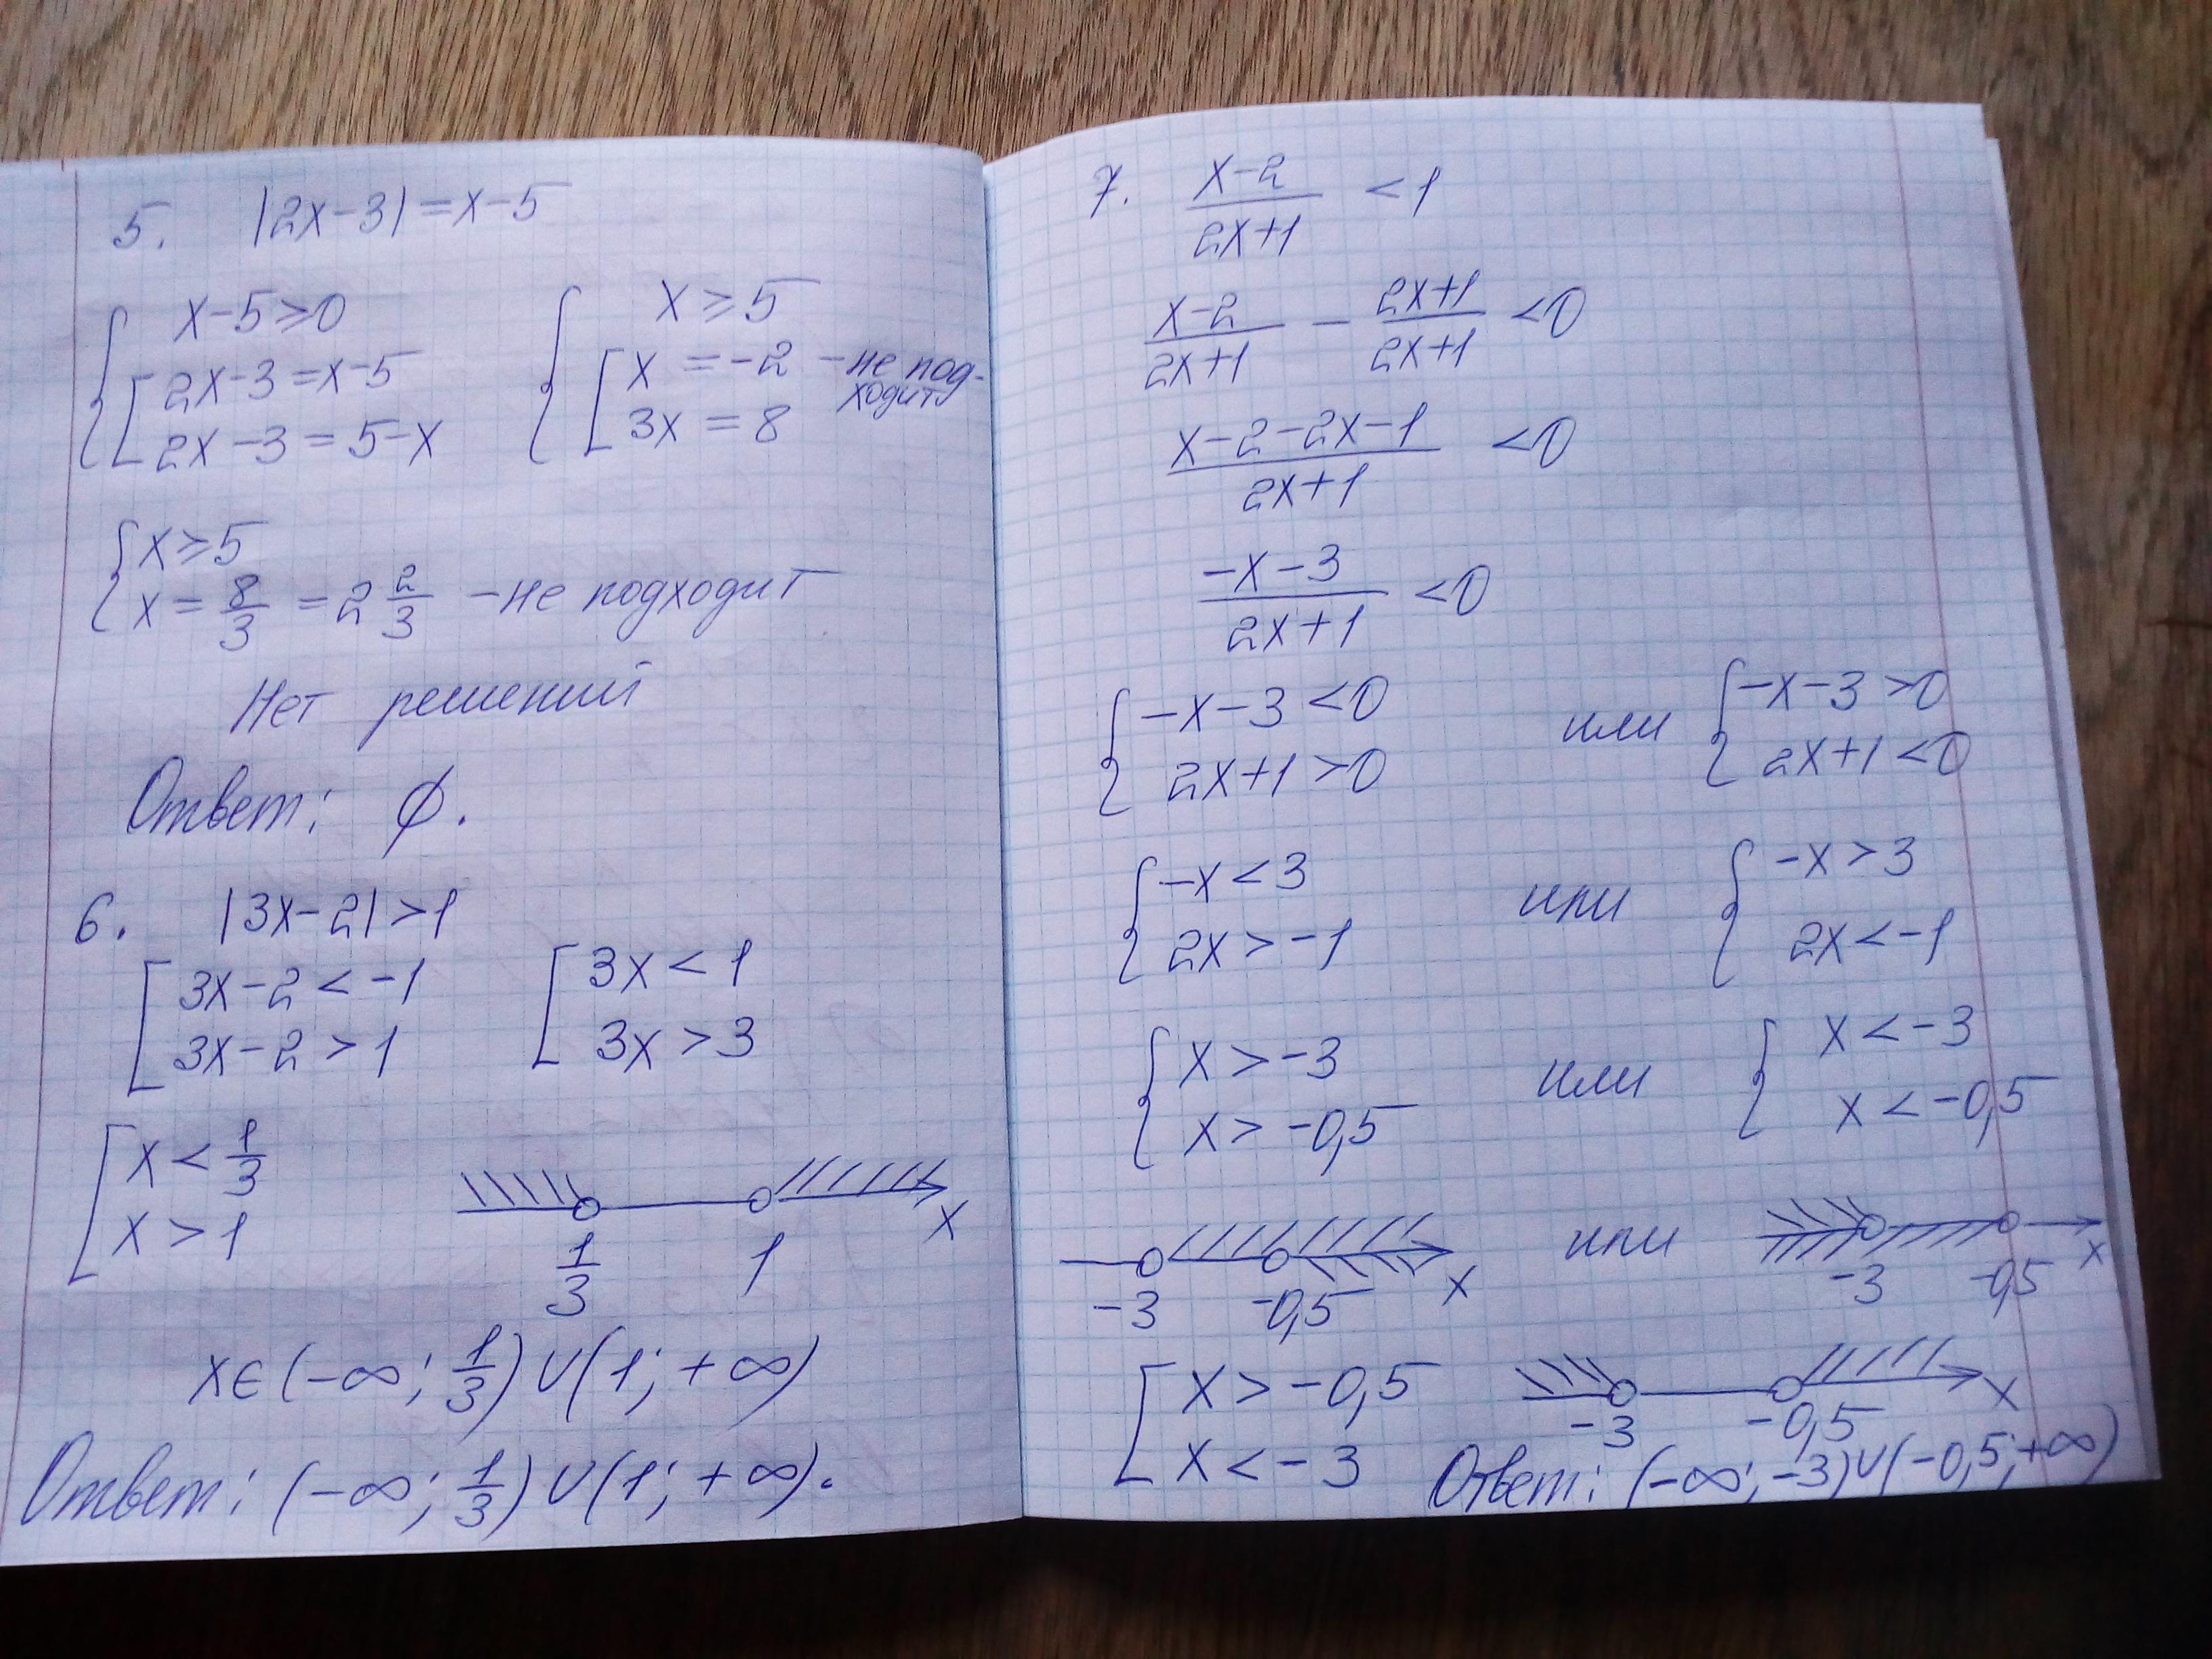 5. |2x-3|=x-5
{ x-5≥0
[ 2x-3=x-5
2x-3=5-x
{ x≥5
[ x=-2 -не под-
ходит
3x=8
{ x≥5
x=8/3=2 2/3 -не подходит
Нет решений
Ответ: ∅.
6. |3x-2|>1
[ 3x-2<-1
3x-2>1
[ 3x<1
3x>3
[ x<1/3
x>1
1/3 1 x
x∈(-∞; 1/3)∪(1; +∞)
Ответ: (-∞; 1/3)∪(1; +∞).
7. (x-2)/(2x+1) <1
(x-2)/(2x+1) - (2x+1)/(2x+1) <0
(x-2-2x-1)/(2x+1) <0
(-x-3)/(2x+1) <0
{ -x-3<0 или { -x-3>0
2x+1>0 2x+1<0
{ -x<3 или { -x>3
2x>-1 2x<-1
{ x>-3 или { x<-3
x>-0,5 x<-0,5
-3 -0,5 x или -3 -0,5 x
[ x>-0,5
x<-3
-3 -0,5 x
Ответ: (-∞; -3)∪(-0,5; +∞)